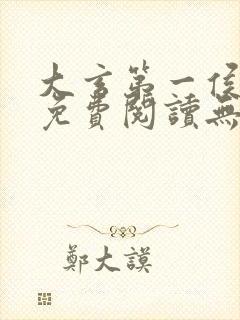 大言第一
免費閱讀無
鄭大謨